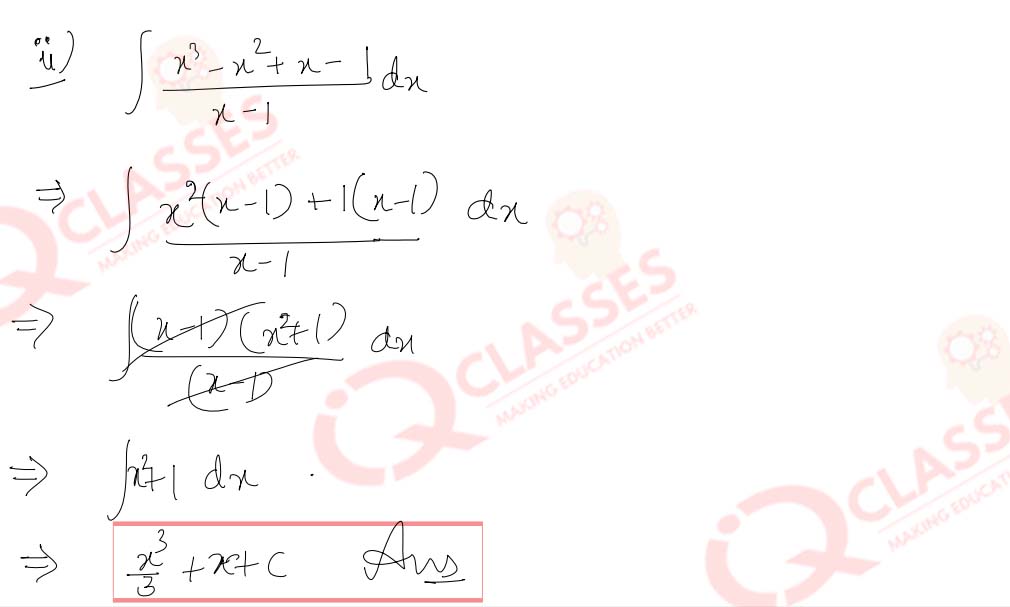 ii) ∫ x³ - x² + x - 1 / x - 1 dx
⇒ ∫ x²(x-1) + 1(x-1) / x - 1 dx
⇒ ∫ (x-1)(x²+1) / (x-1) dx
⇒ ∫ x²+1 dx
⇒ x³/3 + x + c Ans
QCLASSES
MAKING EDUCATION BETTER
QCLASSES
MAKING EDUCATION BETTER
QCLASS
MAKING EDUCAT